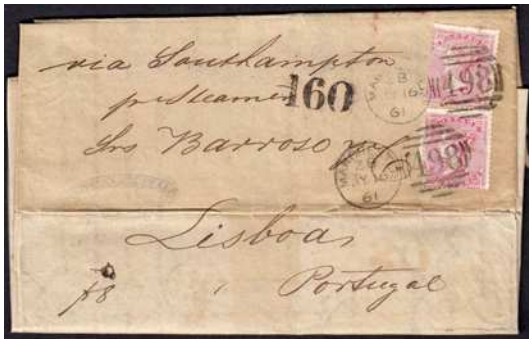 via Southampton
pr Steamer 160
Srs Barroso
Lisboa
Portugal
498
61
498
61